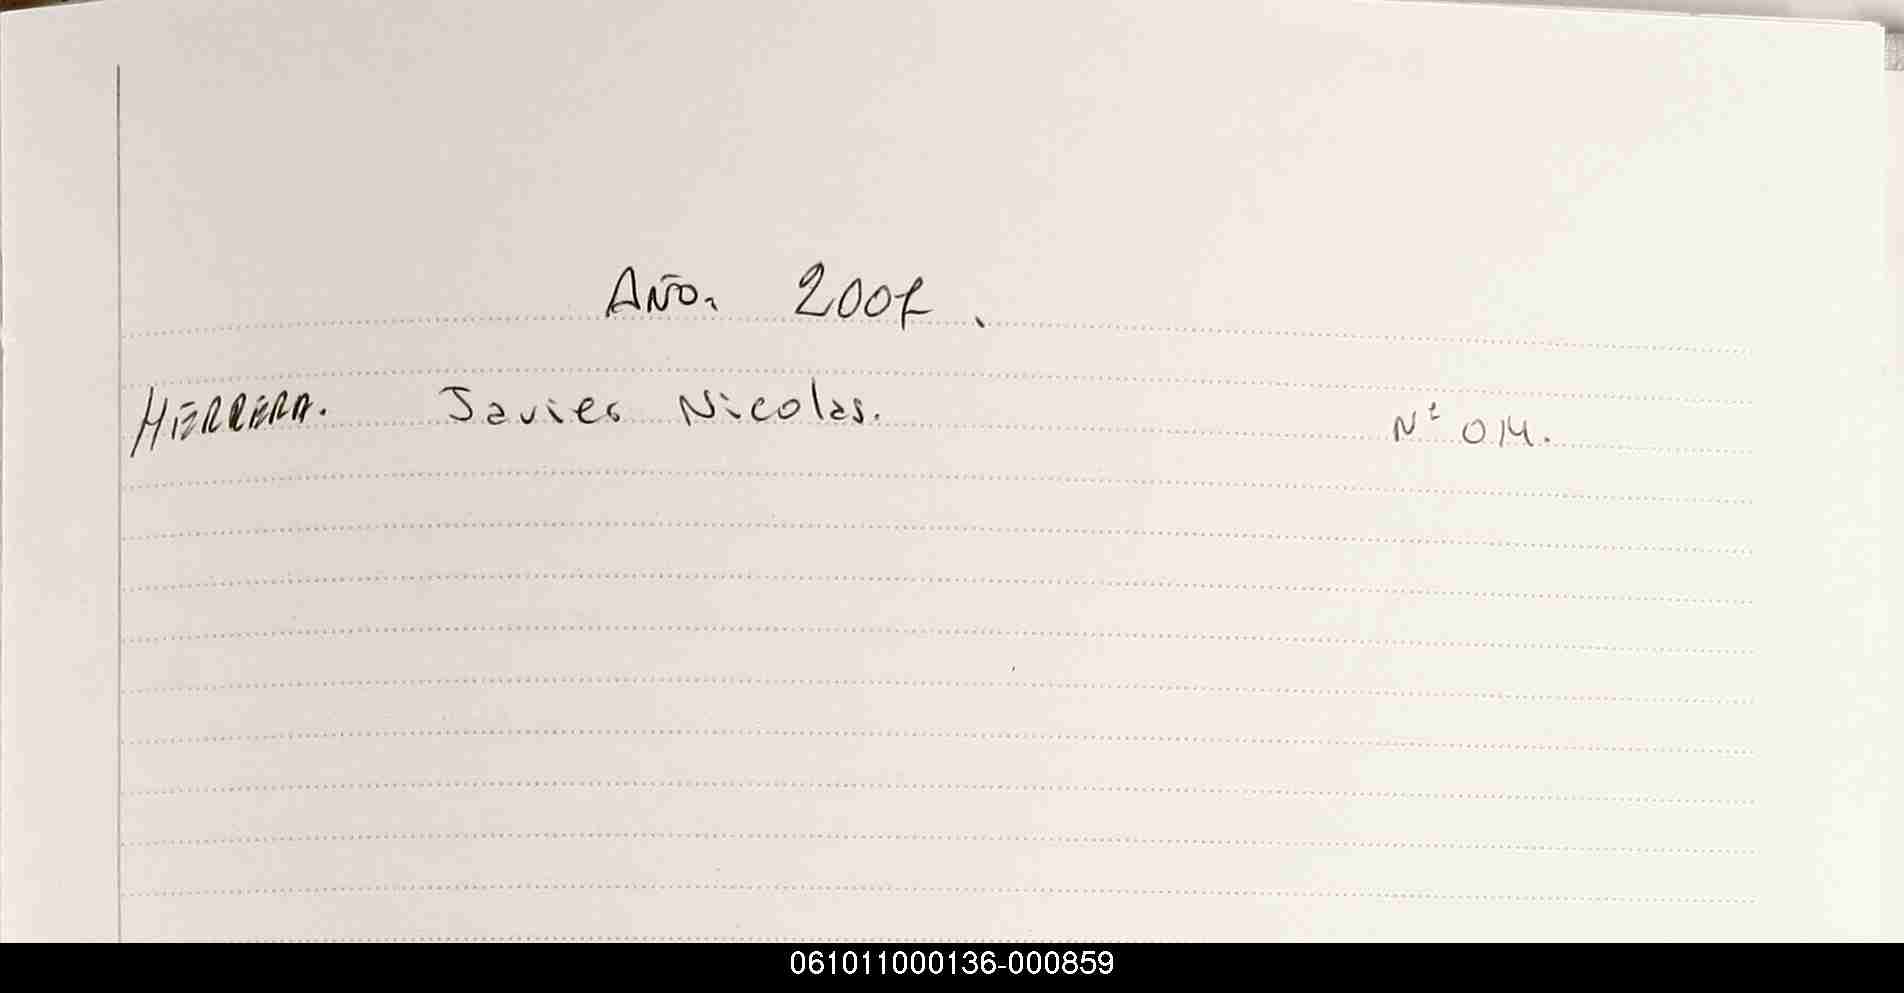 AÑO. 2007.
HERRERA. Javier Nicolas. Nº 014.
061011000136-000859